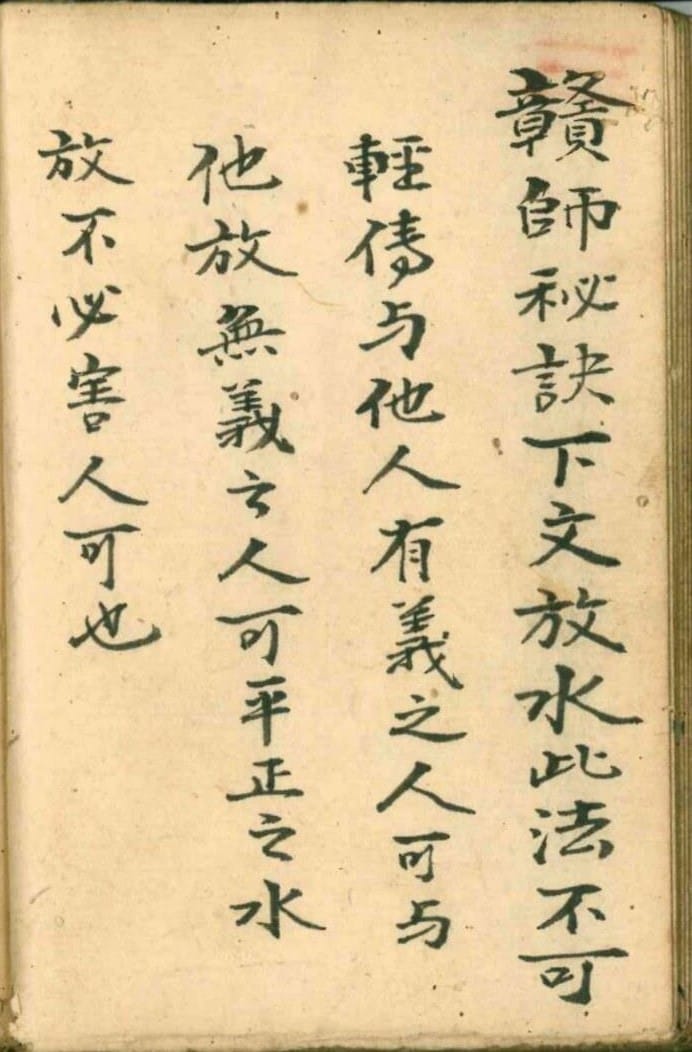 贛師秘訣下文放水此法不可
輕傳与他人有義之人可与
他放無義之人可平正之水
放不必害人可也